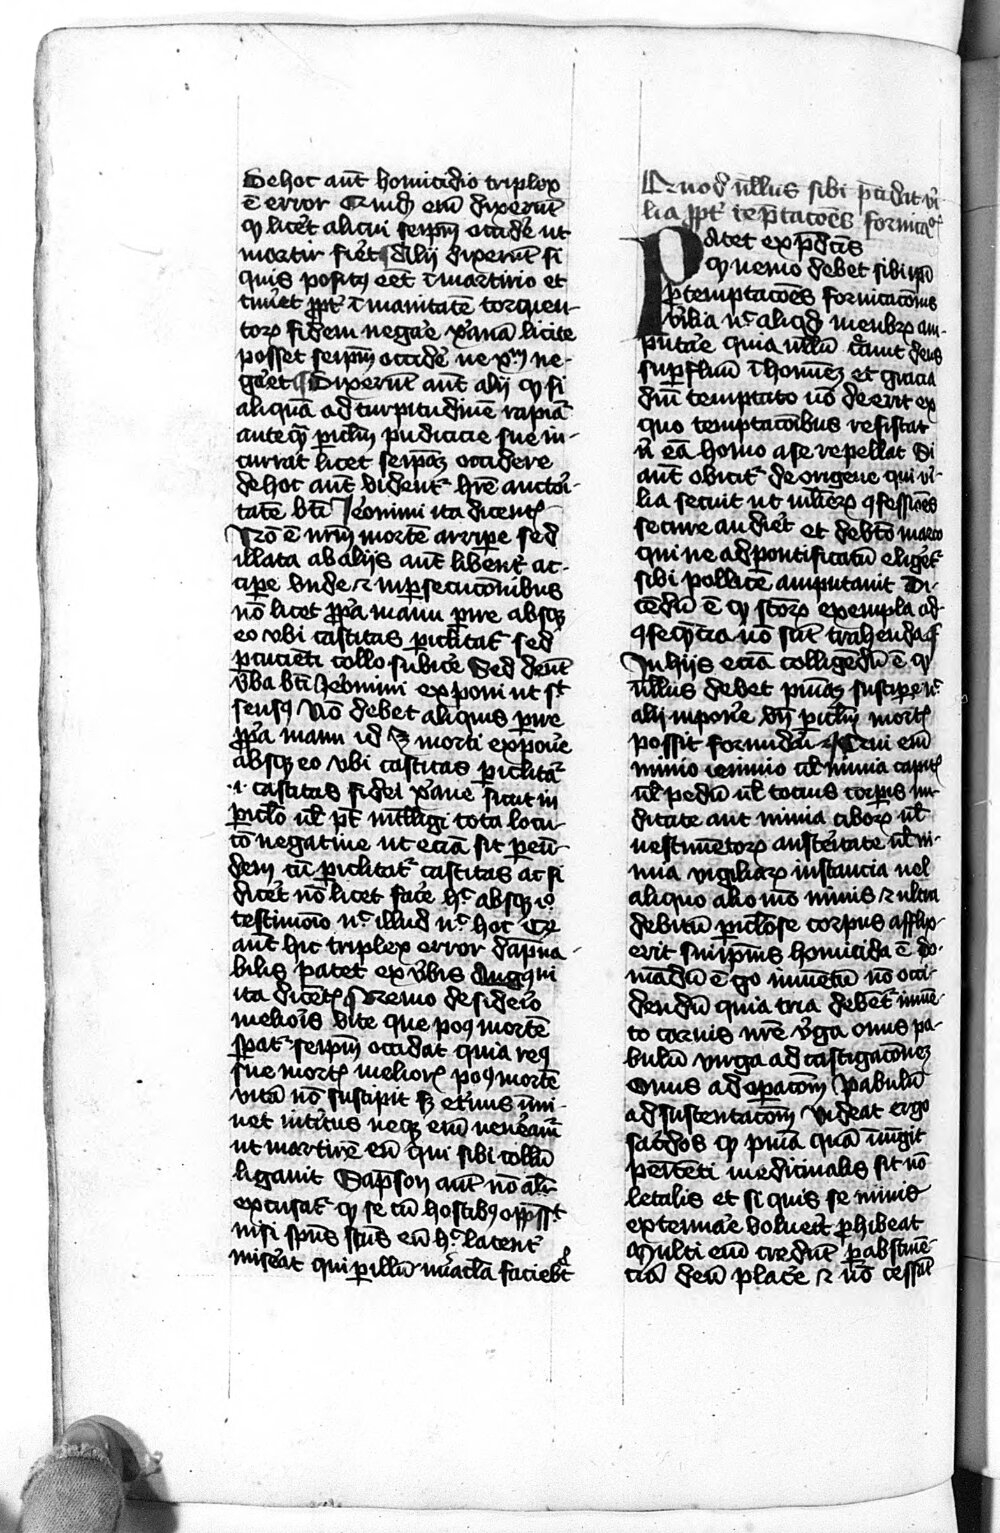 De hoc aut̄ homicidio triplex
ē error Quidā em̄ dixerūt
qꝫ licet alicui seip̄m occidē ut
martir fiet alij dixerūt si
quis positꝰ eēt ī martirio et
timet ꝓpt̄ īmanitatē torquen-
toꝝ fidem negare xp̄ianā licite
posset seip̄m occidē ne xp̄m ne-
garet Dixerūt aut̄ alij qꝫ si
aliquā ad turpitudinē rapiāt̄
anteqꝫ piclm̄ pudicicie sue in-
currat licet seip̄aꝫ occidere
de hoc aut̄ vident̄ hr̄e auctori-
tatē bt̄i Jeronimi ita dicentꝭ
Nō ē nr̄m mortē arripe sed
illata ab alijs aut̄ libent̄ ac-
cipe vnde ⁊ in psecucionibus
nō licet ꝓpa manu pire absqꝫ
eo vbi castitas piclitat̄ sed
pcucienti collo subicē Sed dent̄
vba bt̄i Jeronimi exponi ut sit
sensꝰ Nō debet aliquis pire
ꝓpa manu id ē morti exponē
absqꝫ eo vbi castitas piclitat̄
.i. castitas fidei xp̄iane sicut in
piclo ul̄ pt̄ intelligi tota locu-
cō negatiue ut eciā sit peūn-
dem cū piclitat̄ castitas ac si
dicet nō licet facē hͦ absqꝫ io.
testimōio nͨ illud nͨ hoc Qꝫ
aut̄ hic triplex error dāpna-
bilis patet ex vbis Augꝰtini
ita dicentꝭ Nemo desidēio
melioris vite que pꝰ mortē
spat̄ seip̄m occidat quia reꝰ
sue mortꝭ melioreꝫ pꝰ mortē
vitā nō suscipit sꝫ et vnus īnui-
net īntitus neqꝫ em̄ veneam̄
ut martirē eū qui sibi collū
ligauit Sapson aut̄ nō alit̄
excusat̄ qꝫ se cū hostibꝰ opp̄ss̄it
nisi sp̄us sc̄us eū hͦ latent̄
miserat qui p illū miracla faciebat
Quod nllus sibi p̄cidat vi-
lia ꝓpt̄ tēptacōes fornicacōs
Patet ex p̄dcīs
qꝫ nemo debet sibi ip̄i
p temptacōes fornicacionis
vilia nͨ aliqd menbꝝ am-
putare quia nllū creauit deus
supfluū ī homineꝫ et gracia
diū temptato nō deerit ex
quo temptacōibus resistat
ū eā homo a se repellat Si
aut̄ obicit̄ de origene qui vi-
lia secuit ut mulierꝝ ꝯfessiōes
secure audiet et de bto marco
qui ne ad pontificatū eliget̄
sibi pollicē amputauit Di-
cēdū ē qꝫ sctorꝝ exempla ad
ꝯseqꝫtia nō sūt trahenda
In hijs eciā colligēdū ē qꝫ
nllus debet pīnaꝫ suscipe nͨ
alij īmponē vn̄ piclm̄ mortꝭ
possit formidai Qui em̄
nimio ieiunio ul̄ nimia capitꝭ
ul̄ pedū ul̄ tocius corpis nu-
ditate aut nimia ciborꝝ ul̄
uestimētorꝝ austeitate ul̄ ni-
mia vigiliarꝝ instancia uel
aliquo alio mō nimis ⁊ ultra
debitū piclose corpus afflix-
erit suiip̄ius homicida ē do-
mādū ē gͦ iumētū nō occi-
dendū quia tria debēt̄ iumē-
to carnis nr̄e virga onus pa-
bulū virga ad castigacōneꝫ
Onus ad opacōm Pabulū
ad sustentacōm Videat ergo
sacdos qꝫ pnīa quā īiungit
penitenti medicinalis sit nō
letalis et si quis se nimis
extenuare voluerit phibeat
Multi em̄ credūt p abstinē-
ciā deū placē ⁊ nō cessāt